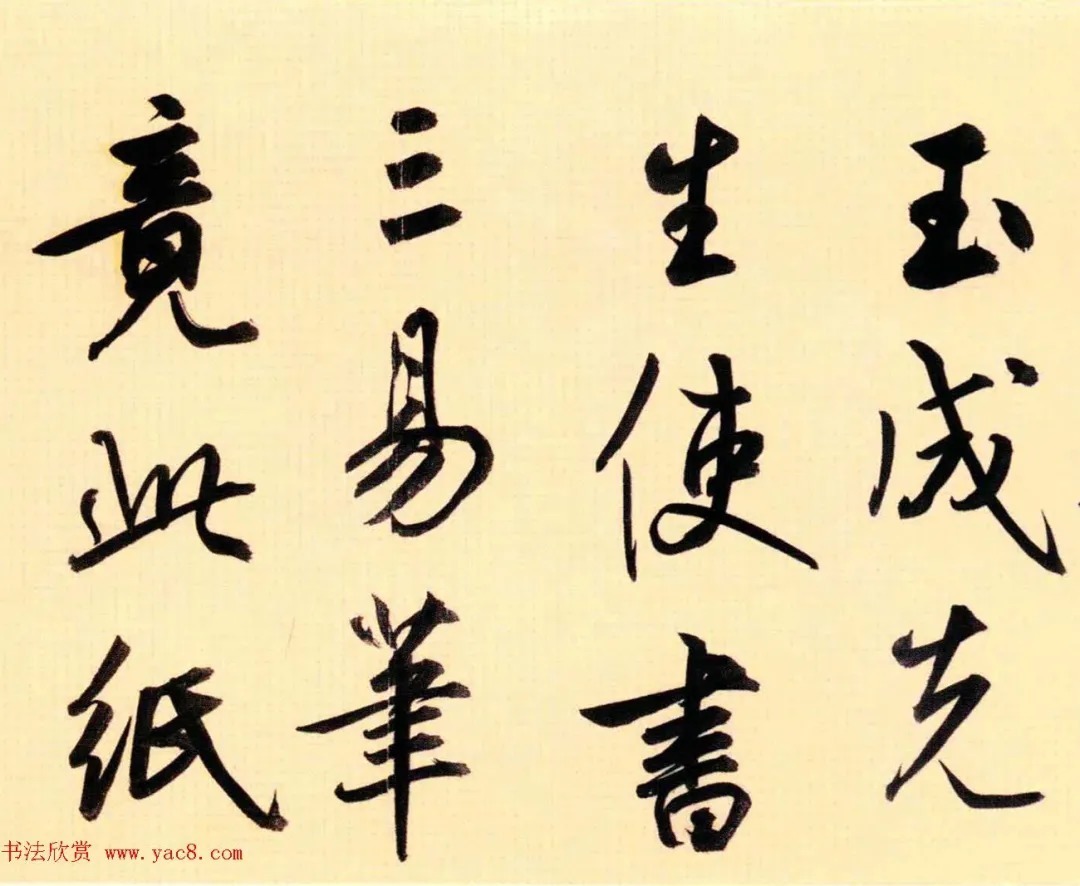 玉成先
生使書
三易筆
竟此紙
书法欣赏 www.yac8.com